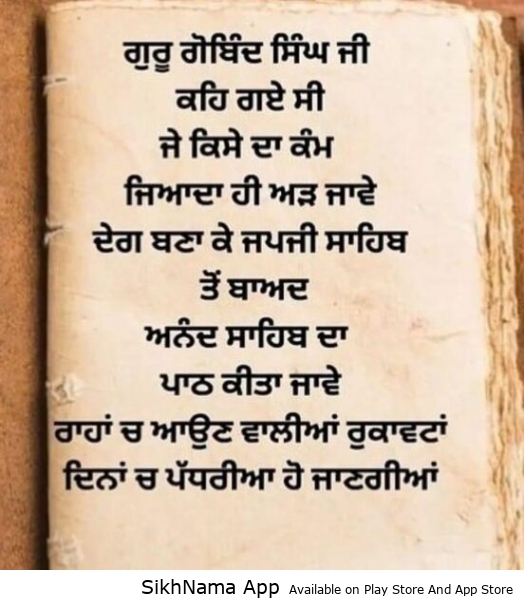 ਗੁਰੂ ਗੋਬਿੰਦ ਸਿੰਘ ਜੀ
ਕਹਿ ਗਏ ਸੀ
ਜੇ ਕਿਸੇ ਦਾ ਕੰਮ
ਜਿਆਦਾ ਹੀ ਅੜ ਜਾਵੇ
ਦੇਗ ਬਣਾ ਕੇ ਜਪਜੀ ਸਾਹਿਬ
ਤੋਂ ਬਾਅਦ
ਅਨੰਦ ਸਾਹਿਬ ਦਾ
ਪਾਠ ਕੀਤਾ ਜਾਵੇ
ਰਾਹਾਂ ਚ ਆਉਣ ਵਾਲੀਆਂ ਰੁਕਾਵਟਾਂ
ਦਿਨਾਂ ਚ ਪੱਧਰੀਆ ਹੋ ਜਾਣਗੀਆਂ
SikhNama App Available on Play Store And App Store